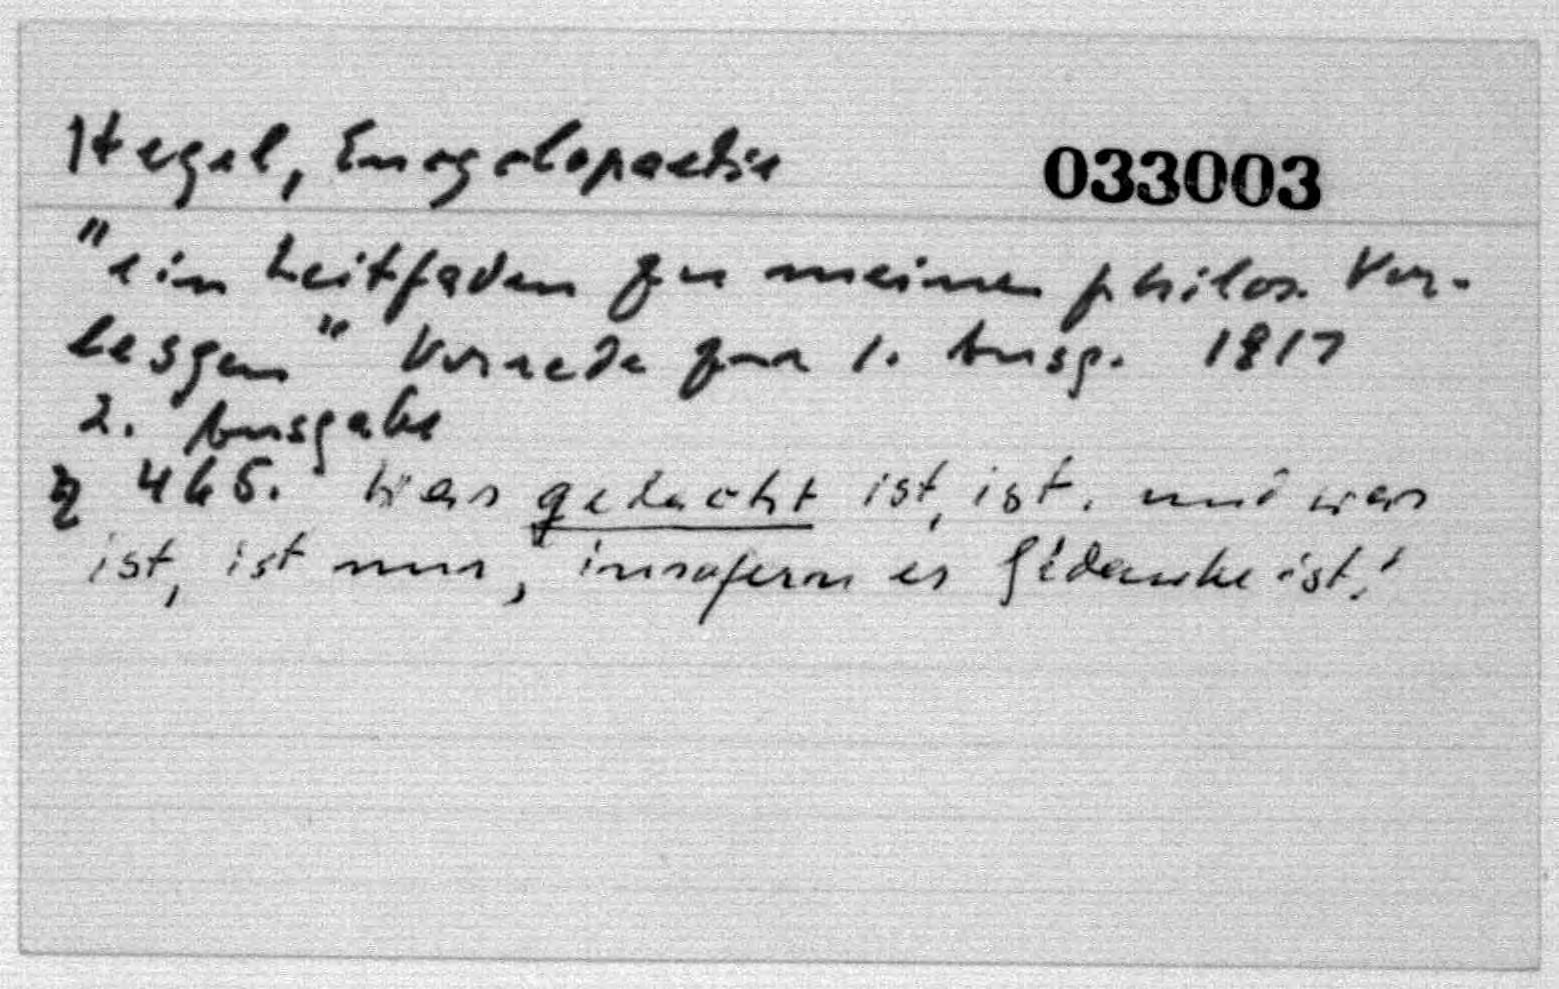 Hegel, Encyclopaedie
033003
"ein Leitfaden zu meinen philos. Vor-
lesgen" Vorrede zur 1. Ausg. 1817
2. Ausgabe
§ 465. Was gedacht ist, ist. und was
ist, ist nur, insofern es Gedanke ist.'